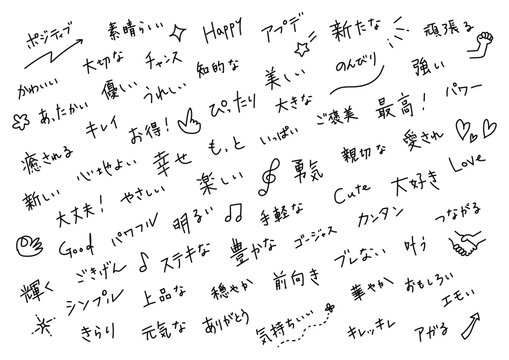 ポジティブ 素晴らしい Happy アプデ 新たな 頑張る
かわいい 大切な チャンス 知的な 美しい のんびり 強い
あったかい 優しい うれしい ぴったり 大きな ご褒美 最高! パワー
癒される キレイ お得! もっと いっぱい 親切な 愛され
新しい 心地よい 幸せ 楽しい 勇気 Cute 大好き Love
大丈夫! やさしい 明るい 手軽な カンタン つながる
Good パワフル ステキな 豊かな ゴージャス ブレない 叶う
輝く ごきげん 上品な 穏やか 前向き 華やか おもしろい
シンプル 元気な ありがとう 気持ちいい キレッキレ エモい
きらり アガる